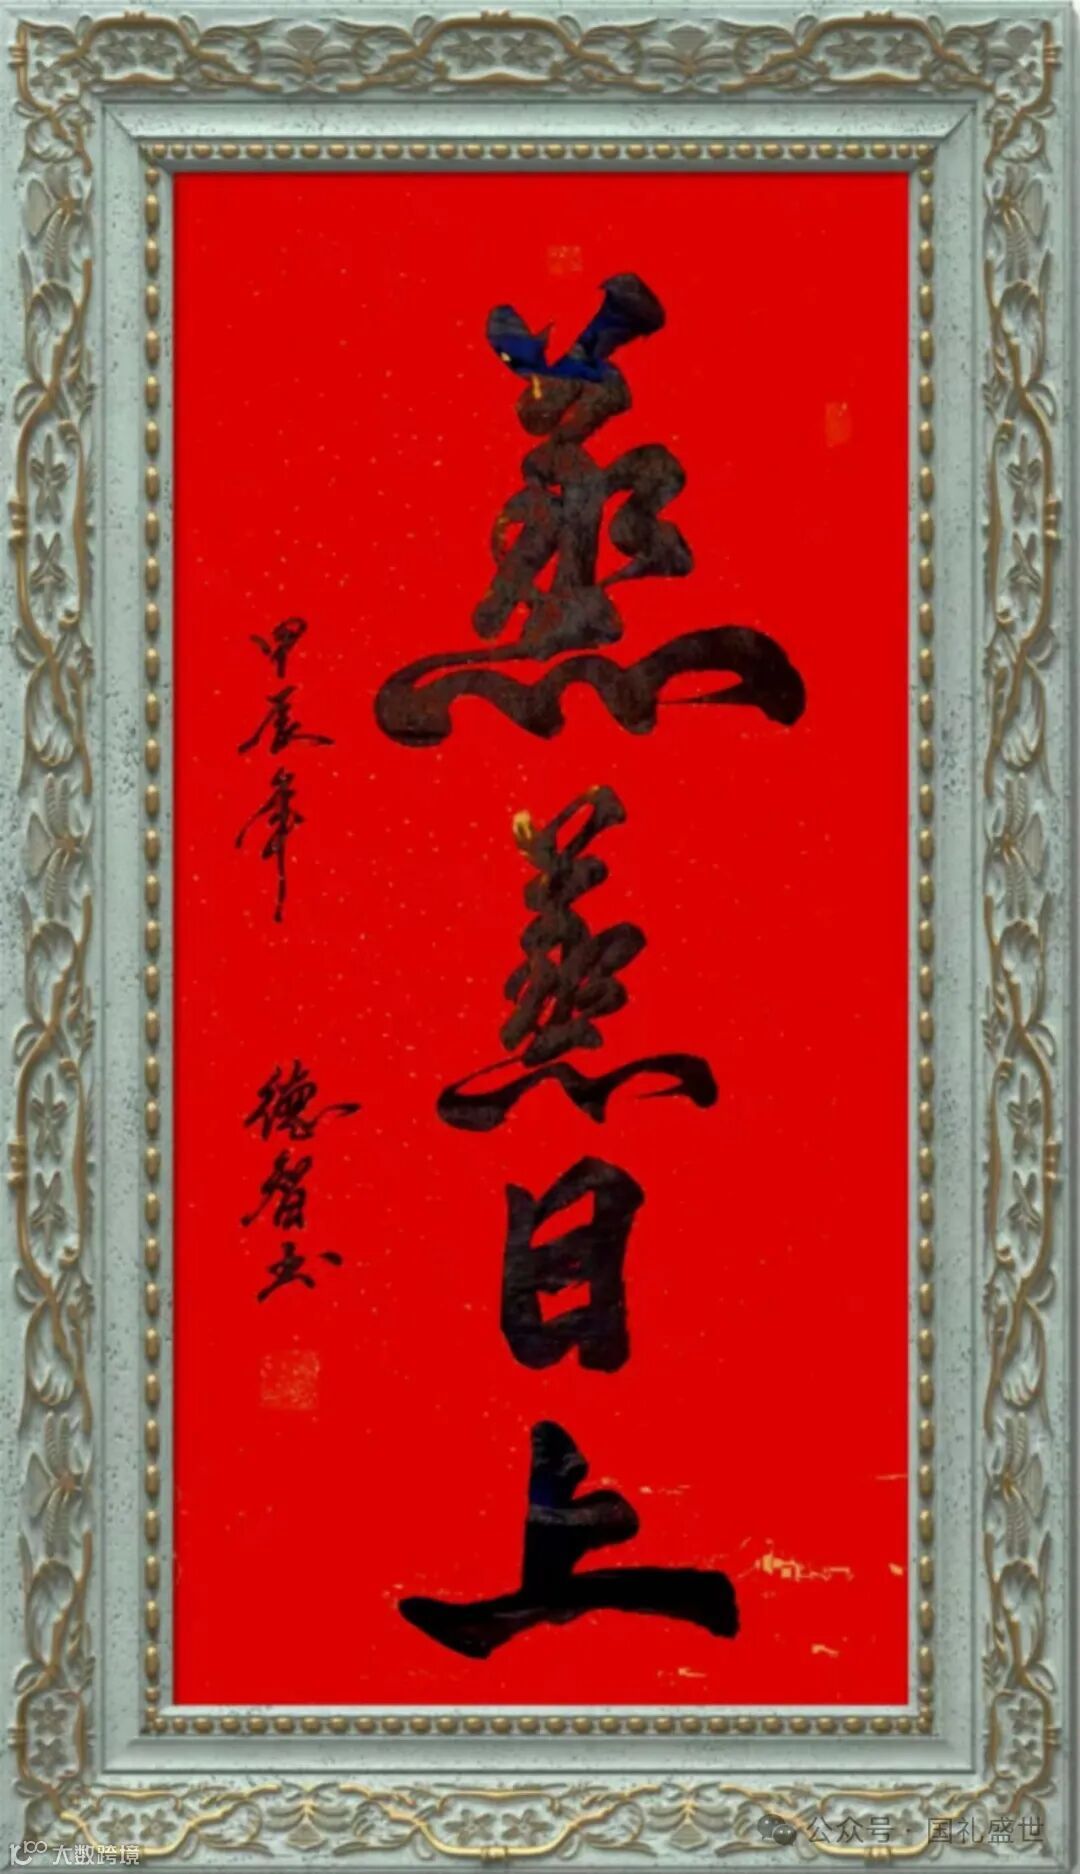 蒸蒸日上
甲辰年
德智书
公众号·国礼盛世
大数跨境